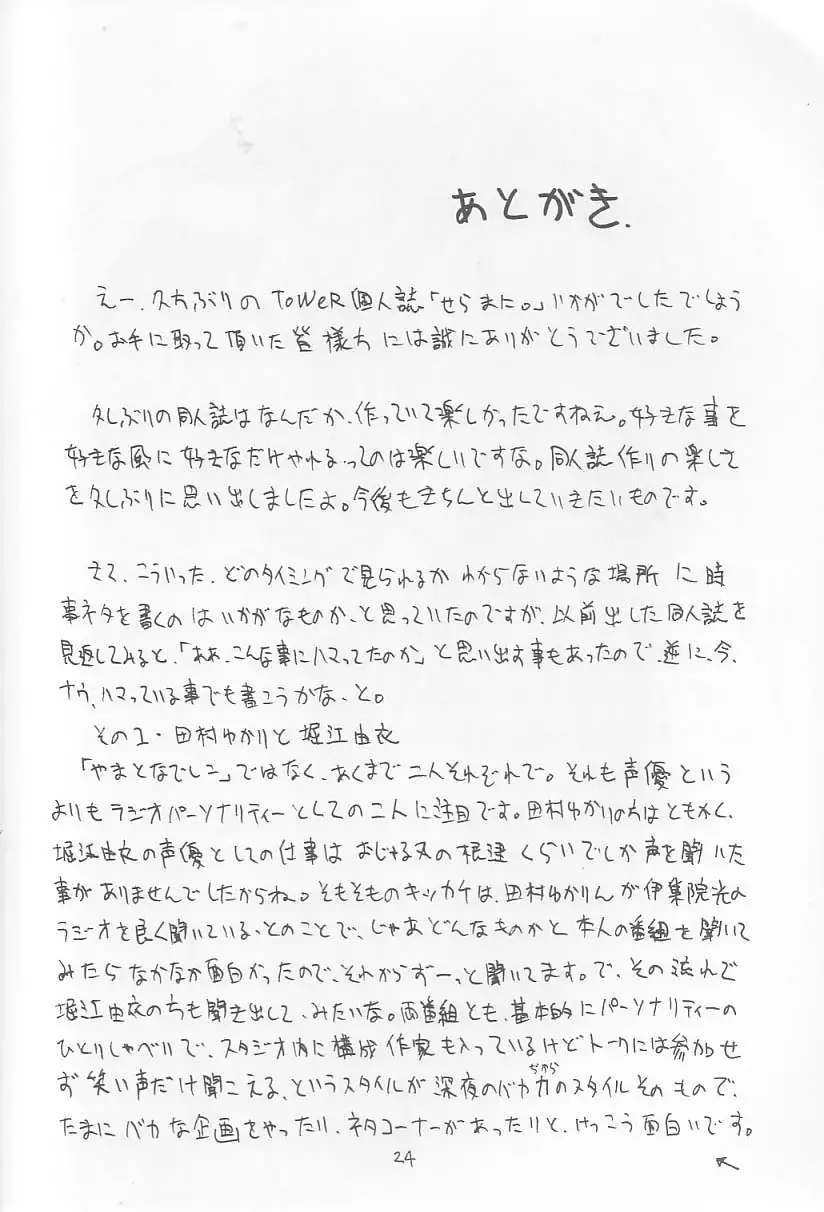 あとがき.
えー、久方ぶりのToWeR個人誌「せらまに。」いかがでしたでしょう
か。お手に取って頂いた皆様方には誠にありがとうございました。
久しぶりの同人誌はなんだか、作っていて楽しかったですねえ。好きな事を
好きな風に好きなだけやれるってのは楽しいですな。同人誌作りの楽しさ
を久しぶりに思い出しましたよ。今後もきちんと出していきたいものです。
さて、こういった、どのタイミングで見られるかわからないような場所に時
事ネタを書くのはいかがなものか、と思っていたのですが、以前出した同人誌を
見返してみると、「ああ、こんな事にハマってたのか」と思い出す事もあったので、逆に、今、
ナウ、ハマっている事でも書こうかな、と。
その1・田村ゆかりと堀江由衣
「やまとなでしこ」ではなく、あくまで二人それぞれで。それも声優という
よりもラジオパーソナリティーとしての二人に注目です。田村ゆかりの方はともかく、
堀江由衣の声優としての仕事はおじゃる丸の くらいでしか声を聞いた
事がありませんでしたからね。そもそものキッカケは、田村ゆかりんが伊集院光の
ラジオを良く聞いている、とのことで、じゃあどんなものかと本人の番組を聞いて
みたらなかなか面白かったので、それからずーっと聞いてます。で、その流れで
堀江由衣の方も聞き出して、みたいな。両番組とも、基本的にパーソナリティーの
ひとりしゃべりで、スタジオ内に構成作家も入っているけどトークには参加せ
ず笑い声だけ聞こえる、というスタイルが深夜のバカ力(ぢから)のスタイルそのもので、
たまにバカな企画をやったり、ネタコーナーがあったりと、けっこう面白いです。
24
↖